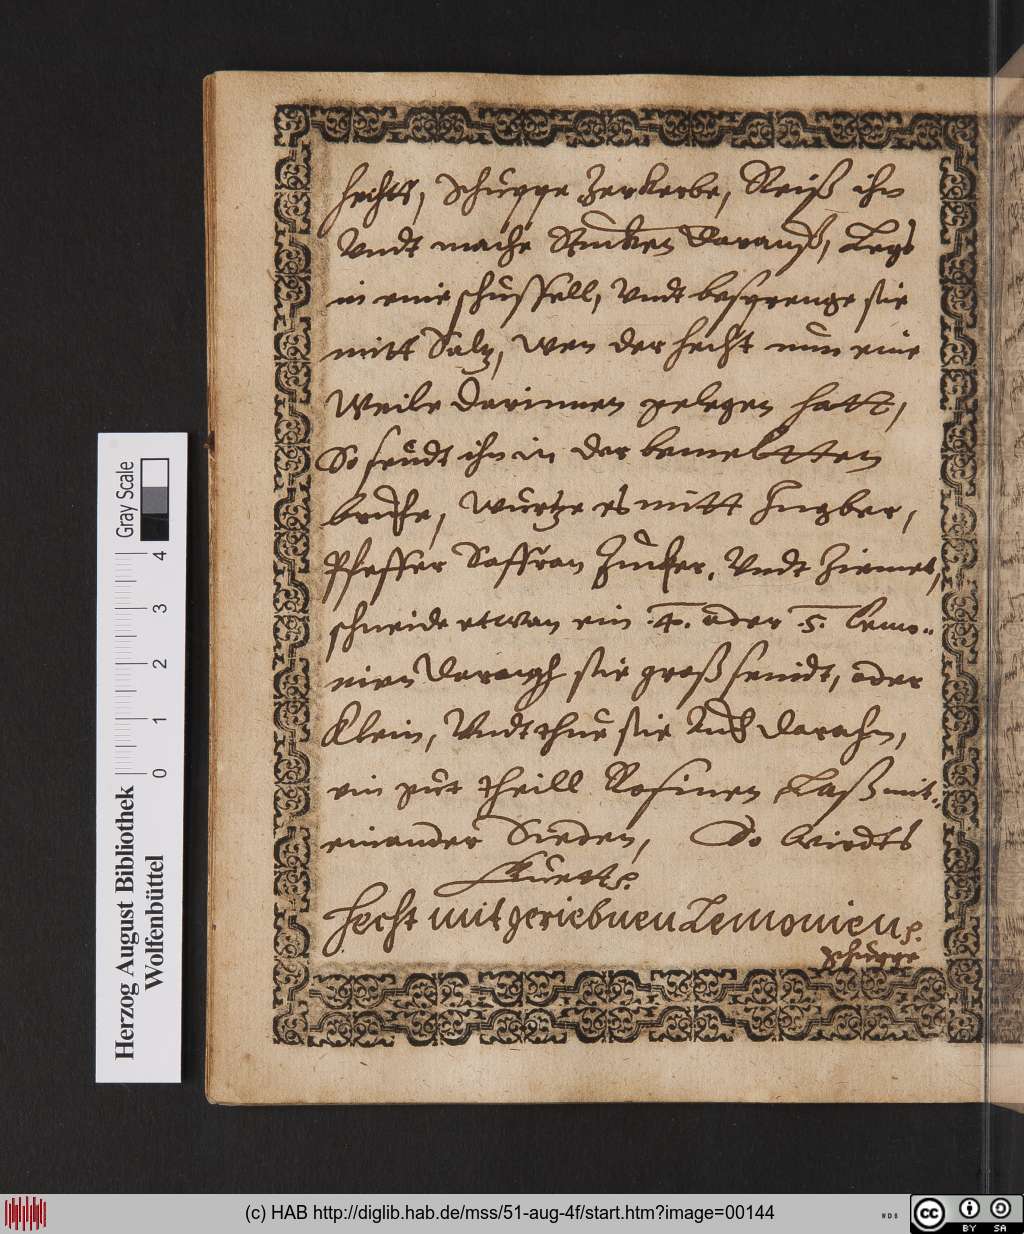 hechts, Schuppe Zerkerbe, Reiß ihn
Vndt mache Stucken darauß, Legs
in eine schussell, Vndt besprenge sie
mitt Saltz, wen der hecht nun eine
Weile darinnen gelegen hatt,
So seudt ihn in der bemeltten
bruhe, wurtze es mitt Ingber,
Pfeffer Saffran Zucker, Vndt Ziemet,
schneide etwan ein .4. oder .5. Lemo=
nien sie groß seindt, oder
klein, Vndt thue sie auch darahn,
ein gut theill Rosinen, Laß mit=
einander Sieden, So wirdts
guett.
Hecht mit geriebnen Lemonien.
Schuppe
Herzog August Bibliothek
Wolfenbüttel
Gray Scale
0 1 2 3 4
(c) HAB http://diglib.hab.de/mss/51-aug-4f/start.htm?image=00144
WDB
cc BY SA